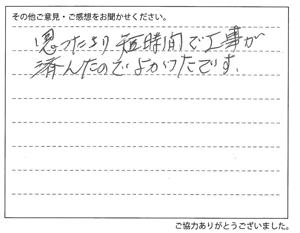 その他ご意見・ご感想をお聞かせください。
思ったより短時間で工事が
済んだのでよかったです。
ご協力ありがとうございました。